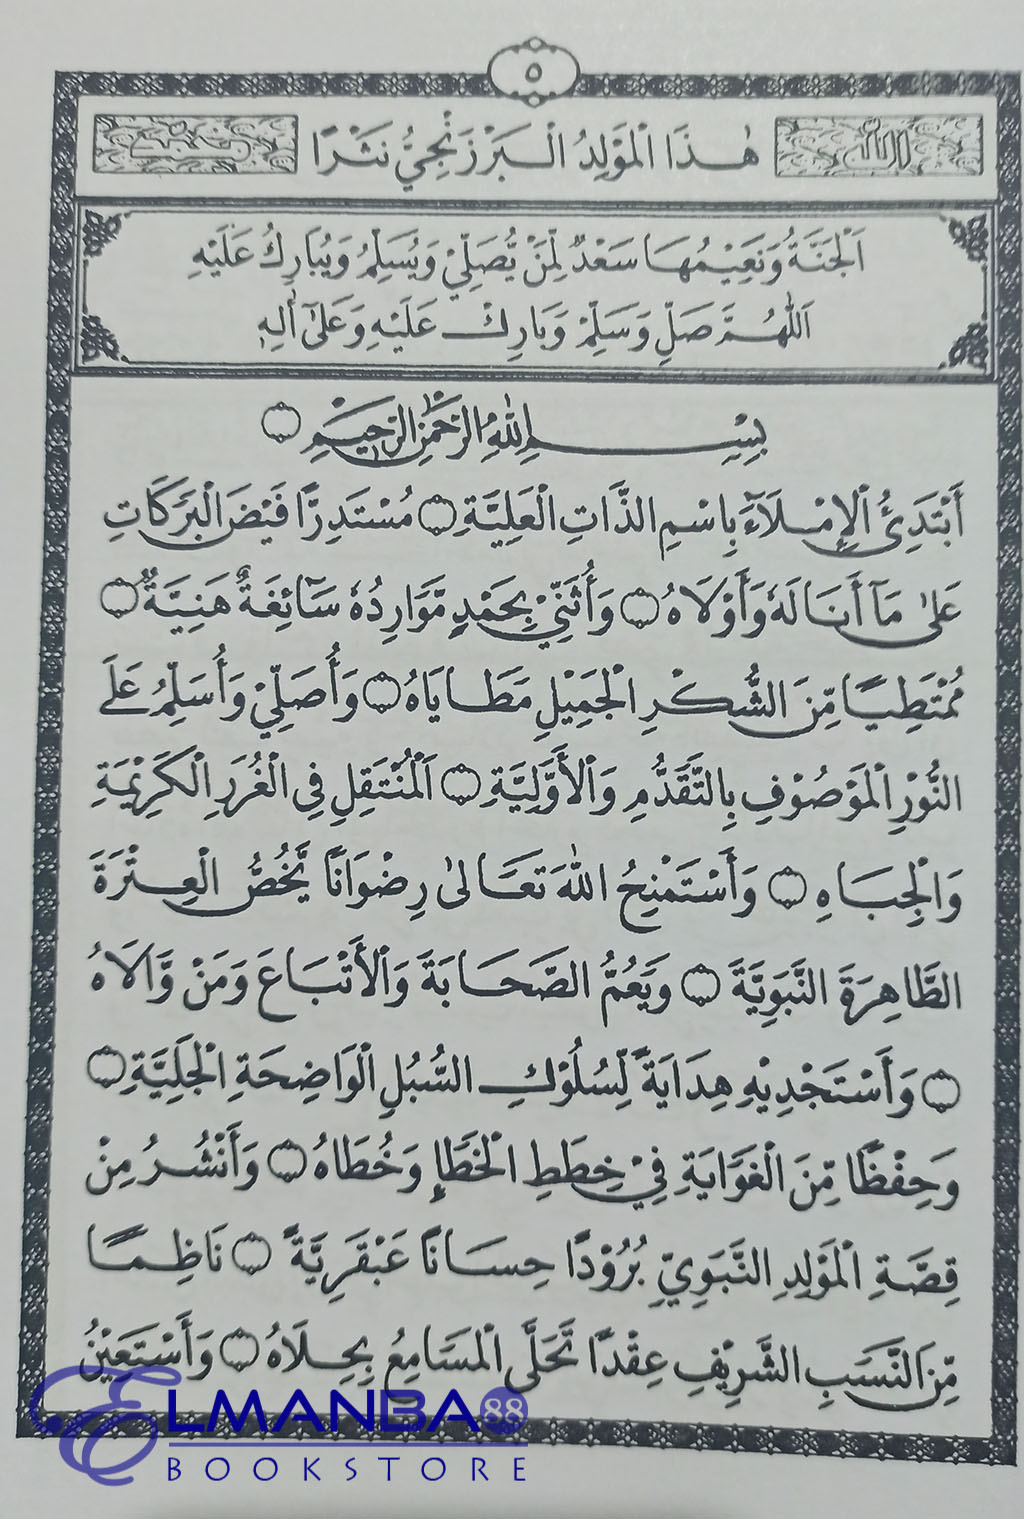 ٥
الله هٰذَا الْمَوْلِدُ الْبَرْزَنْجِيُّ نَثْرًا محمد
اَلْجَنَّةُ وَنَعِيْمُهَا سَعْدٌ لِّمَنْ يُّصَلِّيْ وَيُسَلِّمُ وَيُبَارِكُ عَلَيْهِ
اَللّٰهُمَّ صَلِّ وَسَلِّمْ وَبَارِكْ عَلَيْهِ وَعَلٰٓى اٰلِهٖ
بِسْمِ اللهِ الرَّحْمٰنِ الرَّحِيْمِ ۝
أَبْتَدِئُ الْإِمْلَآءَ بِاسْمِ الذَّاتِ الْعَلِيَّةِ ۝ مُسْتَدِرًّا فَيْضَ الْبَرَكَاتِ
عَلٰى مَآ أَنَالَهٗ وَأَوْلَاهُ ۝ وَأُثَنِّيْ بِحَمْدٍ مَّوَارِدُهٗ سَآئِغَةٌ هَنِيَّةٌ ۝
مُمْتَطِيًا مِّنَ الشُّكْرِ الْجَمِيْلِ مَطَايَاهُ ۝ وَأُصَلِّيْ وَأُسَلِّمُ عَلَى
النُّوْرِ الْمَوْصُوْفِ بِالتَّقَدُّمِ وَالْأَوَّلِيَّةِ ۝ اَلْمُنْتَقِلِ فِي الْغُرَرِ الْكَرِيْمَةِ
وَالْجِبَاهِ ۝ وَأَسْتَمْنِحُ اللهَ تَعَالٰى رِضْوَانًا يَّخُصُّ الْعِتْرَةَ
الطَّاهِرَةَ النَّبَوِيَّةَ ۝ وَيَعُمُّ الصَّحَابَةَ وَالْأَتْبَاعَ وَمَنْ وَّالَاهُ
۝ وَأَسْتَجْدِيْهِ هِدَايَةً لِّسُلُوْكِ السُّبُلِ الْوَاضِحَةِ الْجَلِيَّةِ ۝
وَحِفْظًا مِّنَ الْغَوَايَةِ فِيْ خِطَطِ الْخَطَإِ وَخُطَاهُ ۝ وَأَنْشُرُ مِنْ
قِصَّةِ الْمَوْلِدِ النَّبَوِيِّ بُرُوْدًا حِسَانًا عَبْقَرِيَّةً ۝ نَاظِمًا
مِّنَ النَّسَبِ الشَّرِيْفِ عِقْدًا تَّحَلَّى الْمَسَامِعُ بِحِلَاهُ ۝ وَأَسْتَعِيْنُ
ELMANBA 88
BOOKSTORE